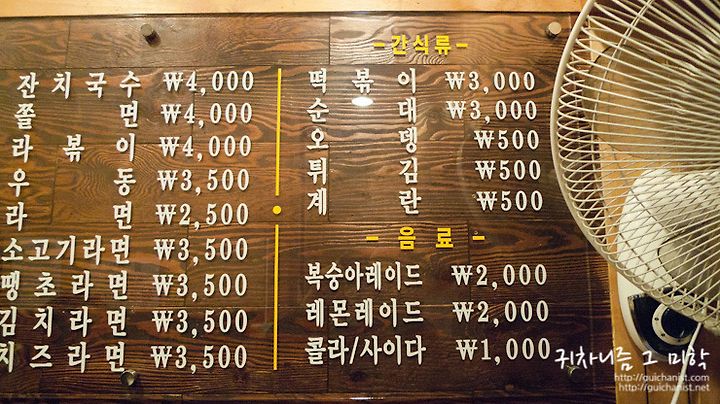 잔치국수 ₩4,000
쫄면 ₩4,000
라볶이 ₩4,000
우동 ₩3,500
라면 ₩2,500
소고기라면 ₩3,500
땡초라면 ₩3,500
김치라면 ₩3,500
치즈라면 ₩3,500
-간식류-
떡볶이 ₩3,000
순대 ₩3,000
오뎅 ₩500
튀김 ₩500
계란 ₩500
- 음료 -
복숭아레이드 ₩2,000
레몬레이드 ₩2,000
콜라/사이다 ₩1,000
귀차니즘 그 미학
http://guichanist.com
http://guichanist.net